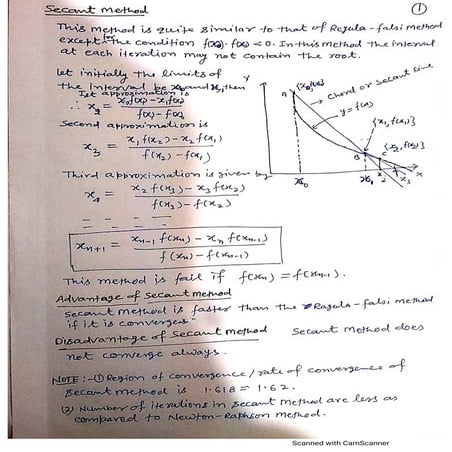 Secant Method
①
This method is quite similar to that of Regula-falsi method
except for the condition f(x₁)·f(x₂) < 0. In this method the interval
at each iteration may not contain the root.
Let initially the limits of
the interval be x₀ and x₁, then
Ist approximation is
∴ x₂ = x₀f(x₁) - x₁f(x₀) / f(x₁) - f(x₀)
Second approximation is
x₃ = x₁f(x₂) - x₂f(x₁) / f(x₂) - f(x₁)
Third approximation is given by
x₄ = x₂f(x₃) - x₃f(x₂) / f(x₃) - f(x₂)
xₙ₊₁ = xₙ₋₁f(xₙ) - xₙf(xₙ₋₁) / f(xₙ) - f(xₙ₋₁)
Y
A
{x₀, f(x₀)}
chord or secant line
y = f(x)
{x₁, f(x₁)}
{x₂, f(x₂)}
B
C
x₀
x₁
x₂
x₃
X
This method is fail if f(xₙ) = f(xₙ₋₁).
Advantage of Secant method
Secant method is faster than the Regula-falsi method
if it is converges
Disadvantage of Secant method Secant Method does
not converge always.
NOTE:-① Region of convergence/rate of convergence of
Secant method is 1.618 = 1.62.
(2) Number of iterations in Secant method are less as
compared to Newton-Raphson method.
Scanned with CamScanner